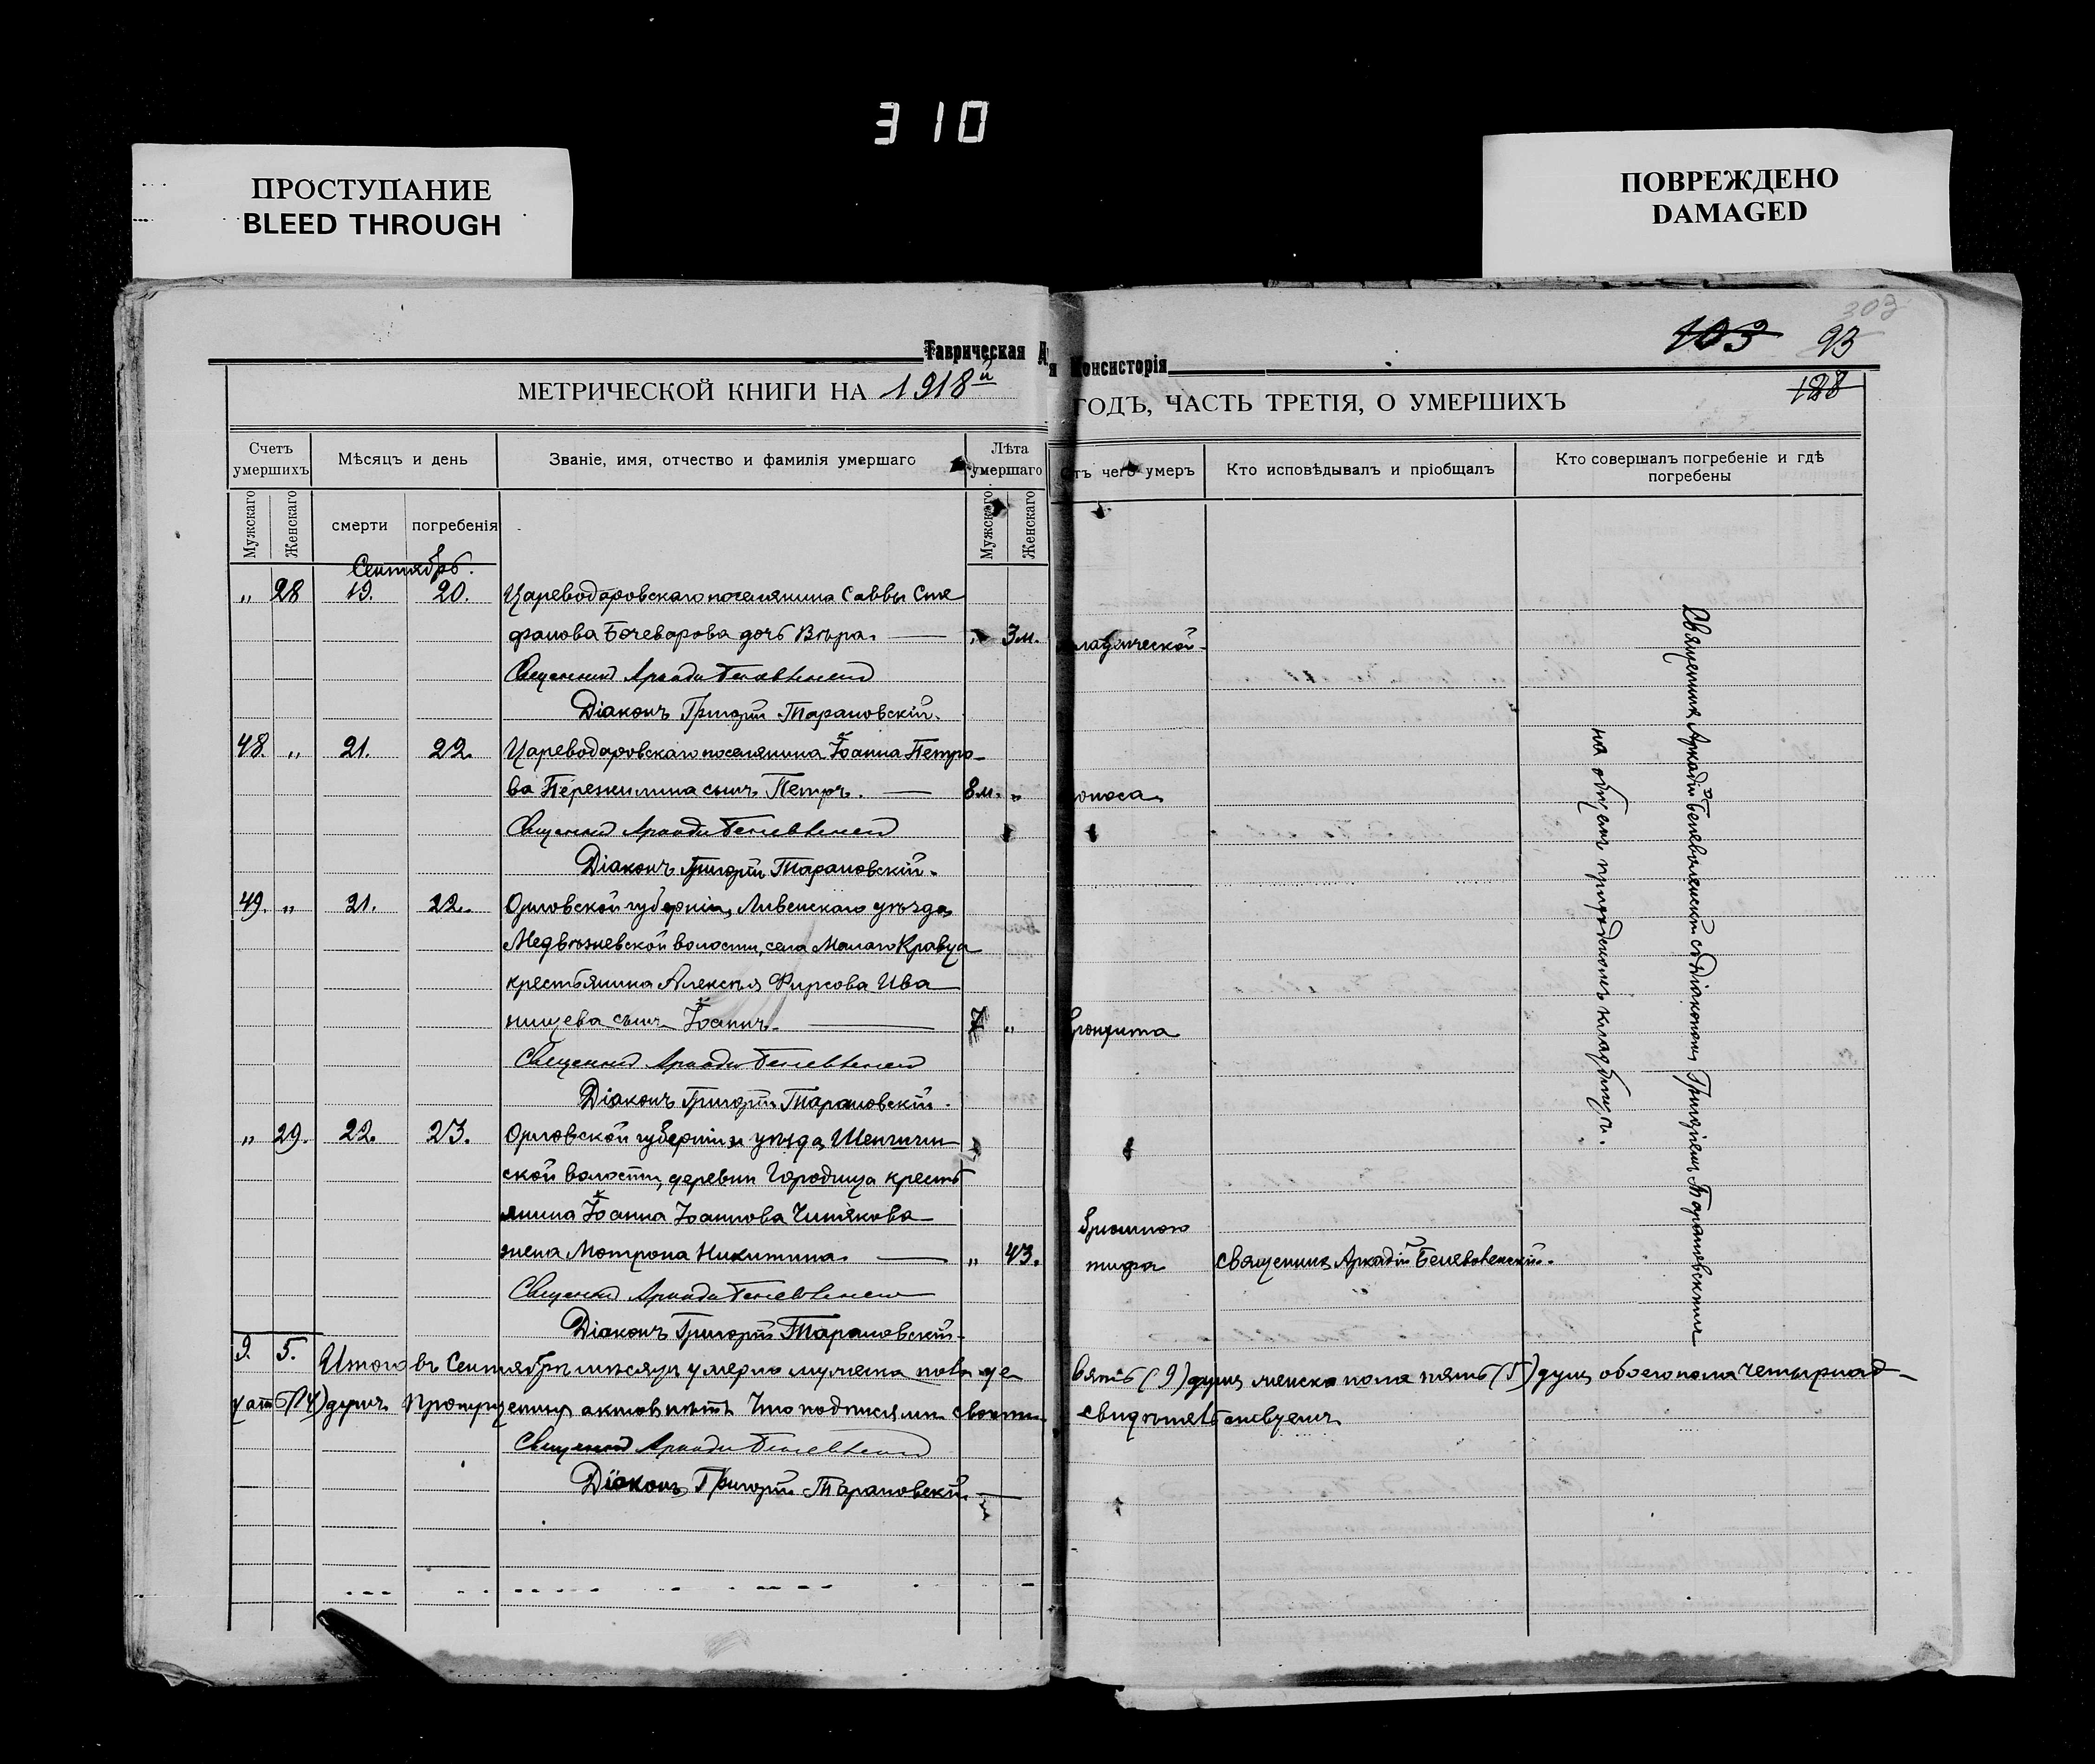 310
ПРОСТУПАНИЕ
BLEED THROUGH
ПОВРЕЖДЕНО
DAMAGED
303
103 93
128
Таврическая Консисторія
МЕТРИЧЕСКОЙ КНИГИ НА 1918й ГОДЪ, ЧАСТЬ ТРЕТІЯ, О УМЕРШИХЪ
Счетъ умершихъ
Мѣсяцъ и день
Званіе, имя, отчество и фамилія умершаго
Лѣта умершаго
Отъ чего умеръ
Кто исповѣдывалъ и пріобщалъ
Кто совершалъ погребеніе и гдѣ погребены
Мужскаго
Женскаго
смерти
погребенія
Мужскаго
Женскаго
Сентябрь.
„ 28 19. 20. Цареводаровскаго поселянина Саввы Сте
фанова Бочеварова дочь Вѣра. — „ 3 м. младенческой
Священникъ Аркадій
Діаконъ Григорій Тарановскій.
48 „ 21. 22. Цареводаровскаго поселянина Іоанна Петро-
ва Пережилина сынъ Петръ. — 8 м. „ поноса
Священникъ Аркадій
Діаконъ Григорій Тарановскій.
49. „ 21. 22. Орловской губерніи, Ливенскаго уѣзда
Медвѣжевской волости, села Малаго Кравца
крестьянина Алексѣя Фирсова Ива
нищева сынъ Іоаннъ. — „ бронхита
Священникъ Аркадій
Діаконъ Григорій Тарановскій.
„ 29. 22. 23. Орловской губерніи и уѣзда,
ской волости, деревни Городища кресть
янина Іоанна Іоаннова Чинякова брюшного
жена Матрона Никитина. — „ 43. тифа Священникъ Аркадій
Священникъ Аркадій
Діаконъ Григорій Тарановскій.
Священникъ Аркадій съ діакономъ Григоріемъ Тарановскимъ
на общемъ приходскомъ кладбищѣ.
9. 5. Итого въ Сентябрѣ мѣсяцѣ умерло мужска пола де вять (9) душъ женска пола пять (5) душъ обоего пола четырнад-
цать (14) душъ. актовъ нѣтъ Что подписями своими свидѣтельствуемъ
Священникъ Аркадій
Діаконъ Григорій Тарановскій